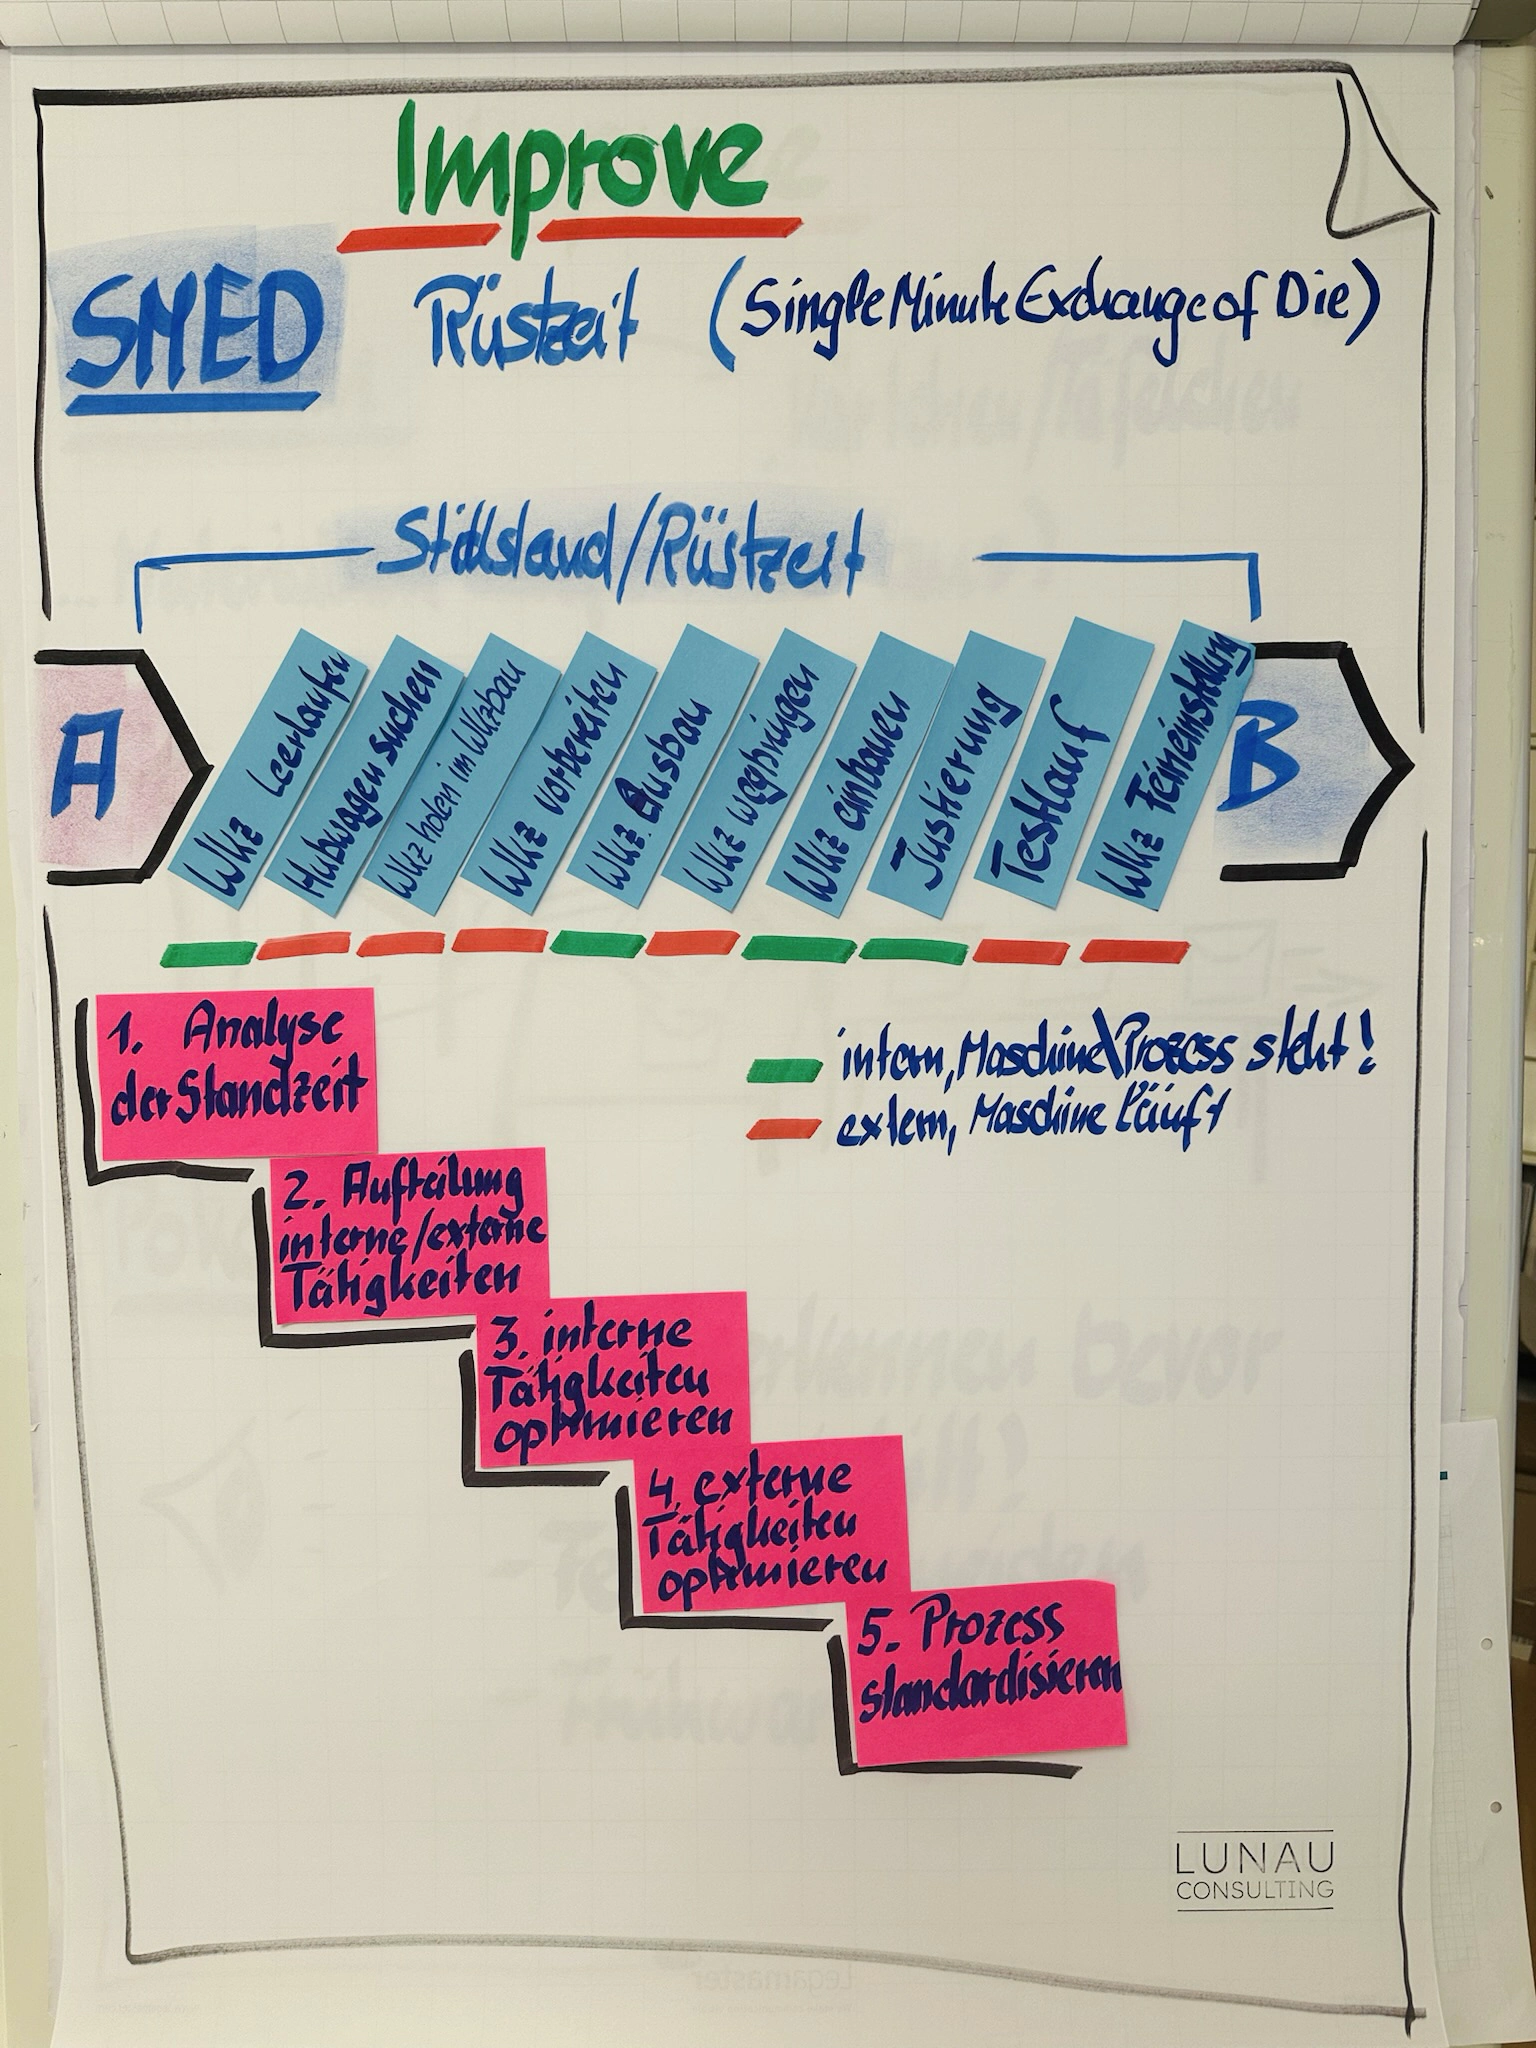 Improve
SMED Rüstzeit (Single Minute Exchange of Die)
Stillstand/Rüstzeit
A
Wkz Leerlaufen
Hubwagen suchen
Wkz holen im Wkzbau
Wkz vorbereiten
Wkz. Ausbau
Wkz wegbringen
Wkz einbauen
Justierung
Testlauf
Wkz Feineinstellung
B
intern, Maschine\Prozess steht!
extern, Maschine läuft
1. Analyse
der Standzeit
2. Aufteilung
interne/externe
Tätigkeiten
3. interne
Tätigkeiten
optimieren
4. externe
Tätigkeiten
optimieren
5. Prozess
standardisieren
LUNAU
CONSULTING